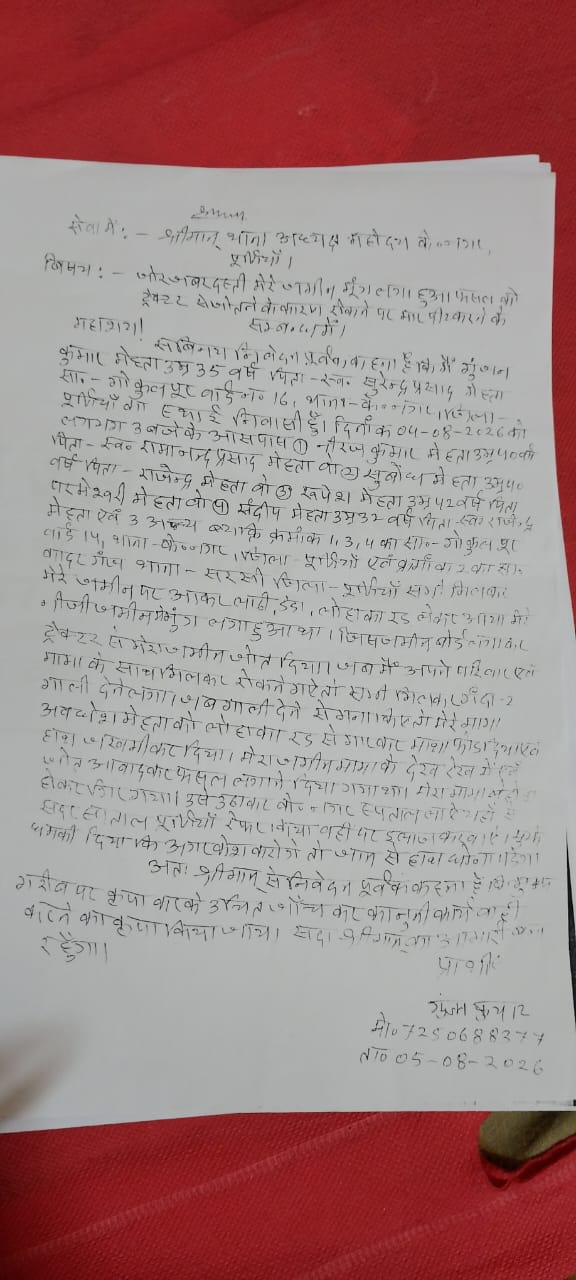 सेवा में :- श्रीमान् थाना अध्यक्ष महोदय के० नगर,
पूर्णियाँ।
विषय :- जोरजबरदस्ती मेरे जमीन मूंग लगा हुआ फसल को
ट्रैक्टर से जोतने के कारण रोकने पर मार पीट करने के
सम्बन्ध में।
महाशय!
सविनय निवेदन पूर्वक कहना है कि मैं गुंजन
कुमार मेहता उम्र 35 वर्ष पिता - स्व० सुरेन्द्र प्रसाद मेहता
सा० - गोकुलपूर वार्ड नं० 16, थाना - के० नगर, जिला -
पूर्णियाँ का स्थाई निवासी हूँ। दिनांक 04-08-2026 को
लगभग 3 बजे के आसपास ① नीरज कुमार मेहता उम्र 40 वर्ष
पिता - स्व० रामानन्द प्रसाद मेहता वो ② सुबोध मेहता उम्र 40
वर्ष पिता - राजेन्द्र मेहता वो ③ रूपेश मेहता उम्र 42 वर्ष पिता
परमेश्वरी मेहता वो ④ संदीप मेहता उम्र 32 वर्ष पिता - स्व० राजेन्द्र
मेहता एवं 3 अन्य व्यक्ति क्रमांक 1, 3, 4 का सा० - गोकुलपूर
वार्ड 14, थाना - के० नगर, जिला - पूर्णियाँ एवं क्रमांक 2 का सा०
गंज थाना - सरसी जिला - पूर्णियाँ सभी मिलकर
मेरे जमीन पर आकर लाठी, डंडा, लोहा का रड लेकर आया मेरे
नीजी जमीन में मुंग लगा हुआ था। जिस जमीन बोर्ड लगाकर
ट्रैक्टर से मेरा जमीन जोत दिया। जब मैं अपने परिवार एवं
मामा के साथ मिलकर रोकने गए तो सभी मिलकर गंदा-2
गाली देने लगा। जब गाली देने से मना किए तो मेरे मामा
अवधेश मेहता को लोहा का रड से मारकर माथा फोड़ दिया एवं
हाथ जखमी कर दिया। मेरा जमीन मामा के देख रेख में एवं
जोत आवाद कर फसल लगाने दिया गया था। मेरा मामा
होकर गिर गया। उसे उठाकर के० नगर हस्पताल लाए यहाँ से
सदर हस्पताल पूर्णियाँ रेफर किया वही पर इलाज करवाए।
धमकी दिया कि अगर केश करोगे तो जान से हाथ धोना पड़ेगा।
अतः श्रीमान् से निवेदन पूर्वक कहना है कि मुझ
गरीब पर कृपा करके उचित जाँच कर कानुनी कार्यवाही
करने का कृपा किया जाय। सदा श्रीमान् का आभारी बना
रहूँगा।
प्रार्थी
गुंजन कुमार
मो० 7250688377
ता० 05-08-2026